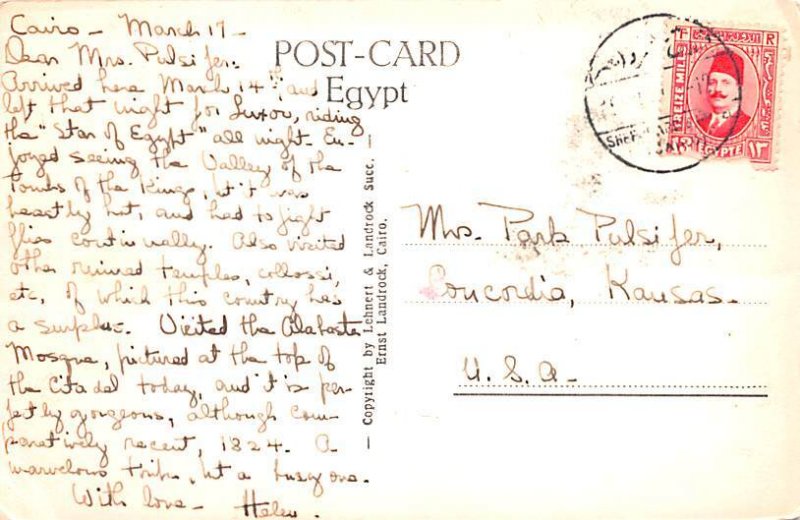 Cairo - March 17 -
Dear Mrs. Pulsifer:
Arrived here March 14th and
left that night for Luxor, riding
the "Star of Egypt" all night. En-
joyed seeing the Valley of the
Tombs of the Kings, it was
beastly hot, and had to fight
flies continually. Also visited
other ruined temples, collossi,
etc, of which this country has
a surplus. Visited the Alabaster
Mosque, pictured at the top of
the Citadel today, and it is per-
fectly gorgeous, although com-
paratively recent, 1824. A
marvelous trip, but a busy one.
With love - Helen.
POST-CARD
Egypt
— Copyright by Lehnert & Landrock Succ. —
Ernst Landrock, Cairo.
Mrs. Park Pulsifer,
Concordia, Kansas.
U. S. A -
TREIZE MILLS
EGYPTE ١٣